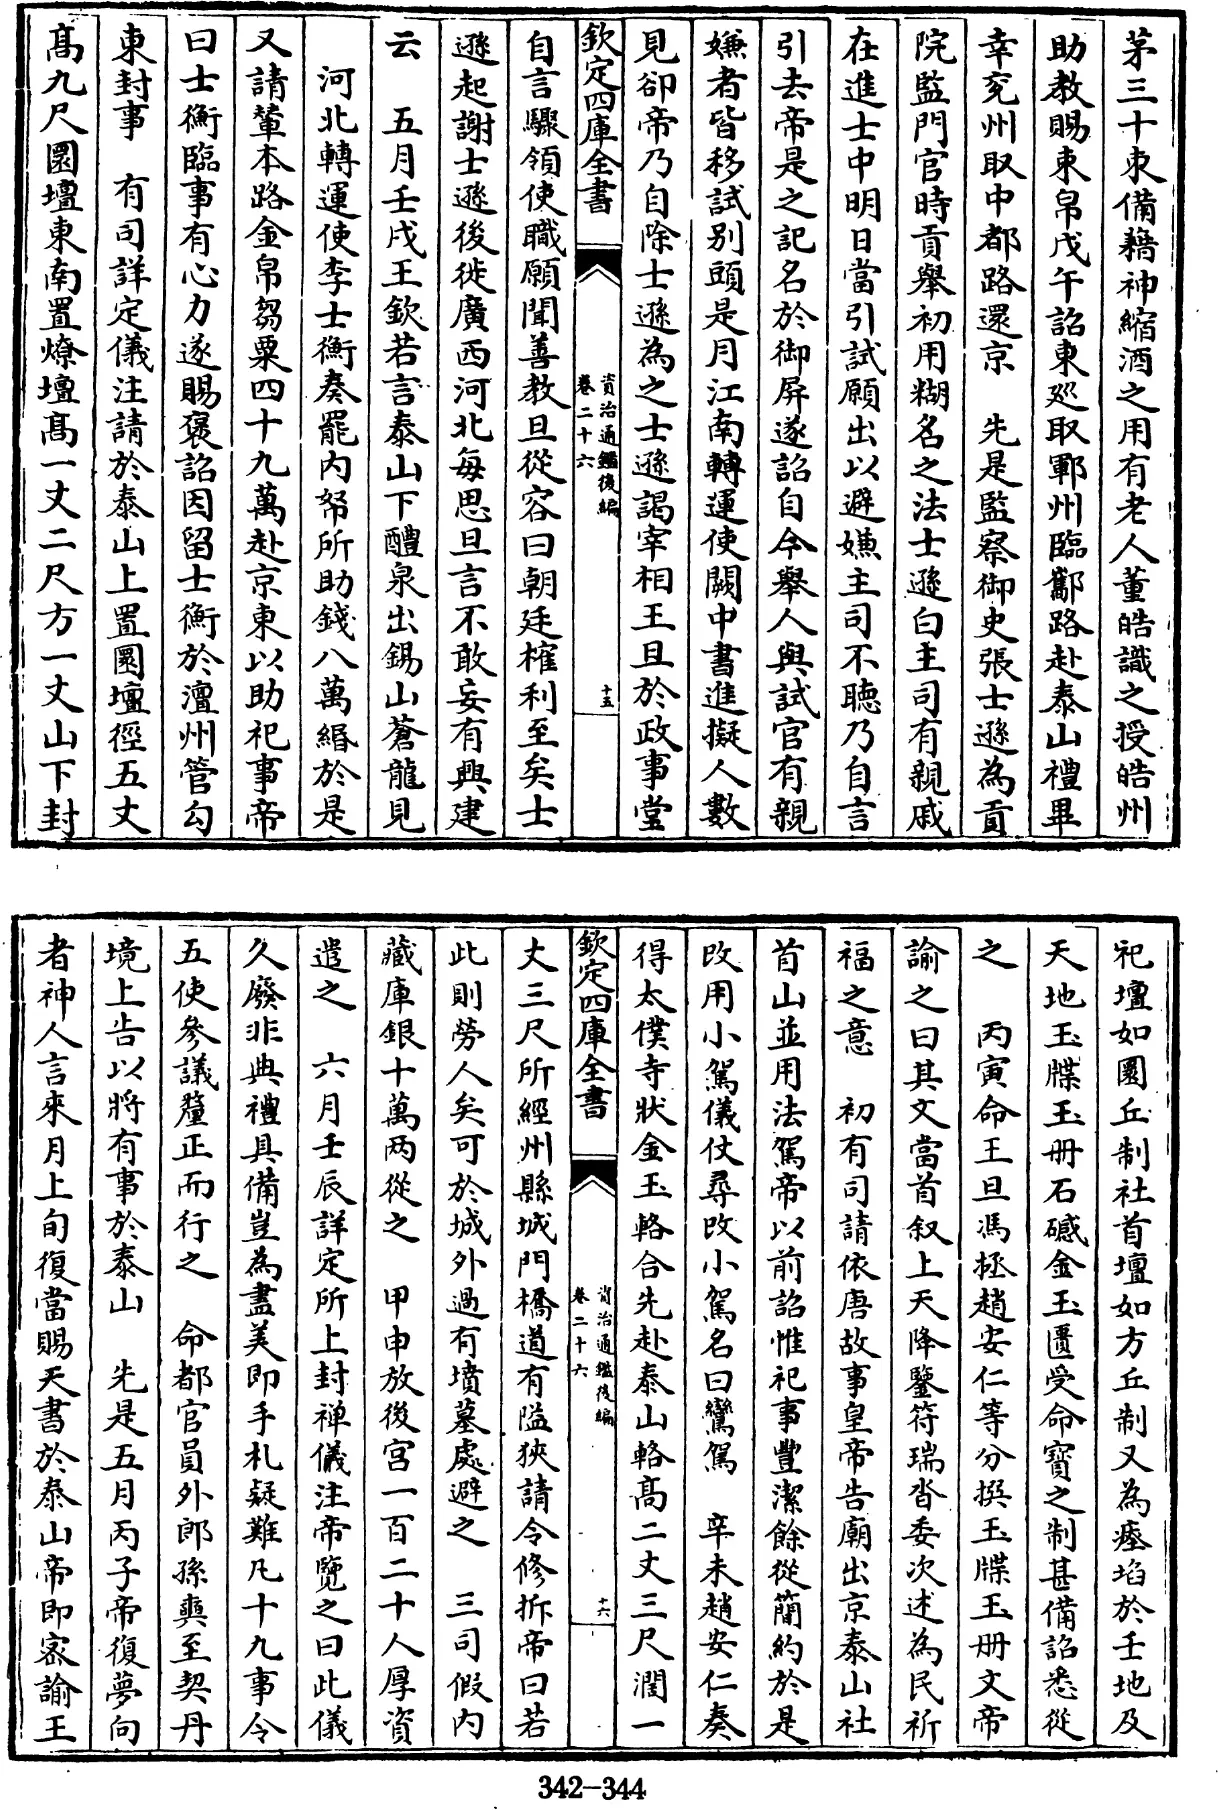 茅三十束備藉神縮酒之用有老人董皓識之授皓州
助教賜束帛戊午詔東廵取鄆州臨鄒路赴泰山禮畢
幸兖州取中都路還京　先是監察御史張士遜為貢
院監門官時貢舉初用糊名之法士遜白主司有親戚
在進士中明日當引試願出以避嫌主司不聽乃自言
引去帝是之記名於御屏遂詔自今舉人與試官有親
嫌者皆移試别頭是月江南轉運使闕中書進擬人數
見卻帝乃自除士遜為之士遜謁宰相王旦於政事堂
欽定四庫全書
資治通鑑後編
卷二十六
十五
自言驟領使職願聞善教旦從容曰朝廷榷利至矣士
遜起謝士遜後徙廣西河北每思旦言不敢妄有興建
云　五月壬戌王欽若言泰山下醴泉出錫山蒼龍見
河北轉運使李士衡奏罷内帑所助錢八萬緡於是
又請輦本路金帛芻粟四十九萬赴京東以助祀事帝
曰士衡臨事有心力遂賜褒詔因留士衡於澶州管勾
東封事　有司詳定儀注請於泰山上置圜壇徑五丈
髙九尺圜壇東南置燎壇髙一丈二尺方一丈山下封
祀壇如圜丘制社首壇如方丘制又為瘞埳於壬地及
天地玉牒玉册石礈金玉匱受命寳之制甚備詔悉從
之　丙寅命王旦馮拯趙安仁等分撰玉牒玉册文帝
諭之曰其文當首叙上天降鑒符瑞沓委次述為民祈
福之意　初有司請依唐故事皇帝告廟出京泰山社
首山並用法駕帝以前詔惟祀事豐潔餘從簡約於是
改用小駕儀仗尋改小駕名曰鸞駕　辛未趙安仁奏
得太僕寺狀金玉輅合先赴泰山輅髙二丈三尺濶一
欽定四庫全書
資治通鑑後編
卷二十六
十六
丈三尺所經州縣城門橋道有隘狹請令修拆帝曰若
此則勞人矣可於城外過有墳墓處避之　三司假内
藏庫銀十萬两從之　甲申放後宫一百二十人厚資
遣之　六月壬辰詳定所上封禅儀注帝覽之曰此儀
久廢非典禮具備豈為盡美即手札疑難凡十九事令
五使參議釐正而行之　命都官員外郎孫奭至契丹
境上告以將有事於泰山　先是五月丙子帝復夢向
者神人言來月上旬復當賜天書於泰山帝即宻諭王
342-344